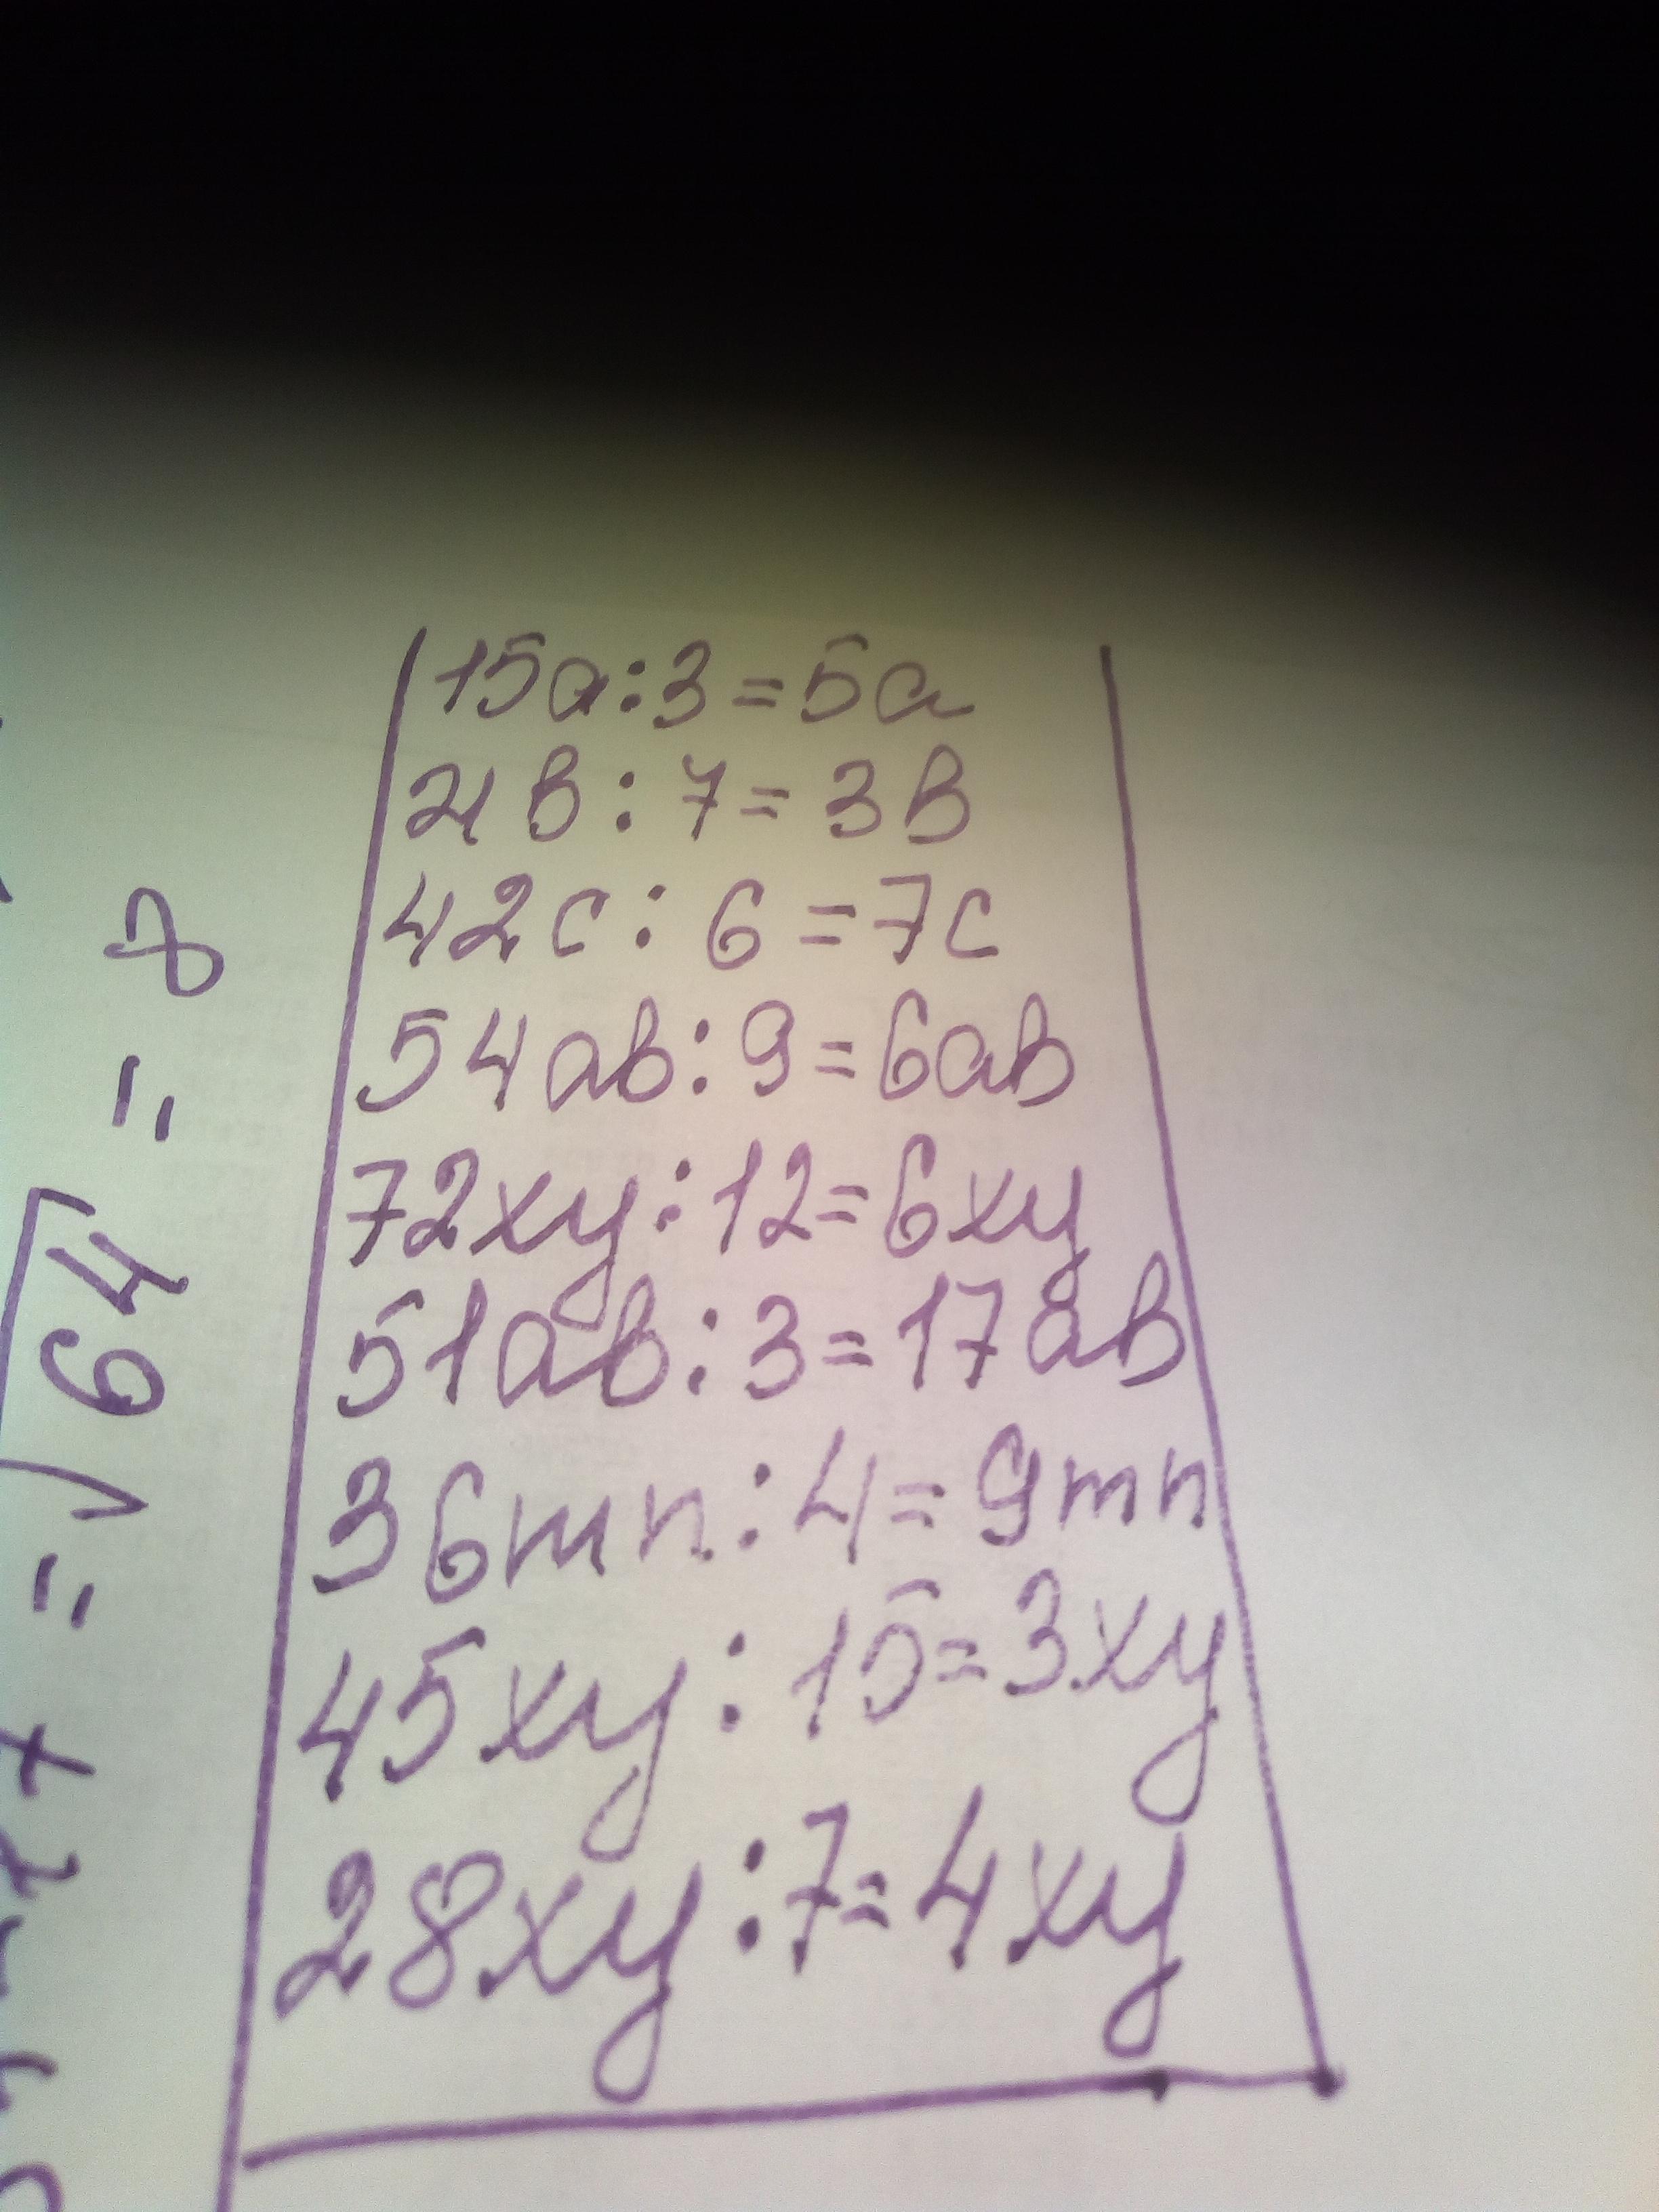 15a:3=5a
21b:7=3b
42c:6=7c
54ab:9=6ab
72xy:12=6xy
51ab:3=17ab
36mn:4=9mn
45xy:15=3xy
28xy:7=4xy
=√64=8